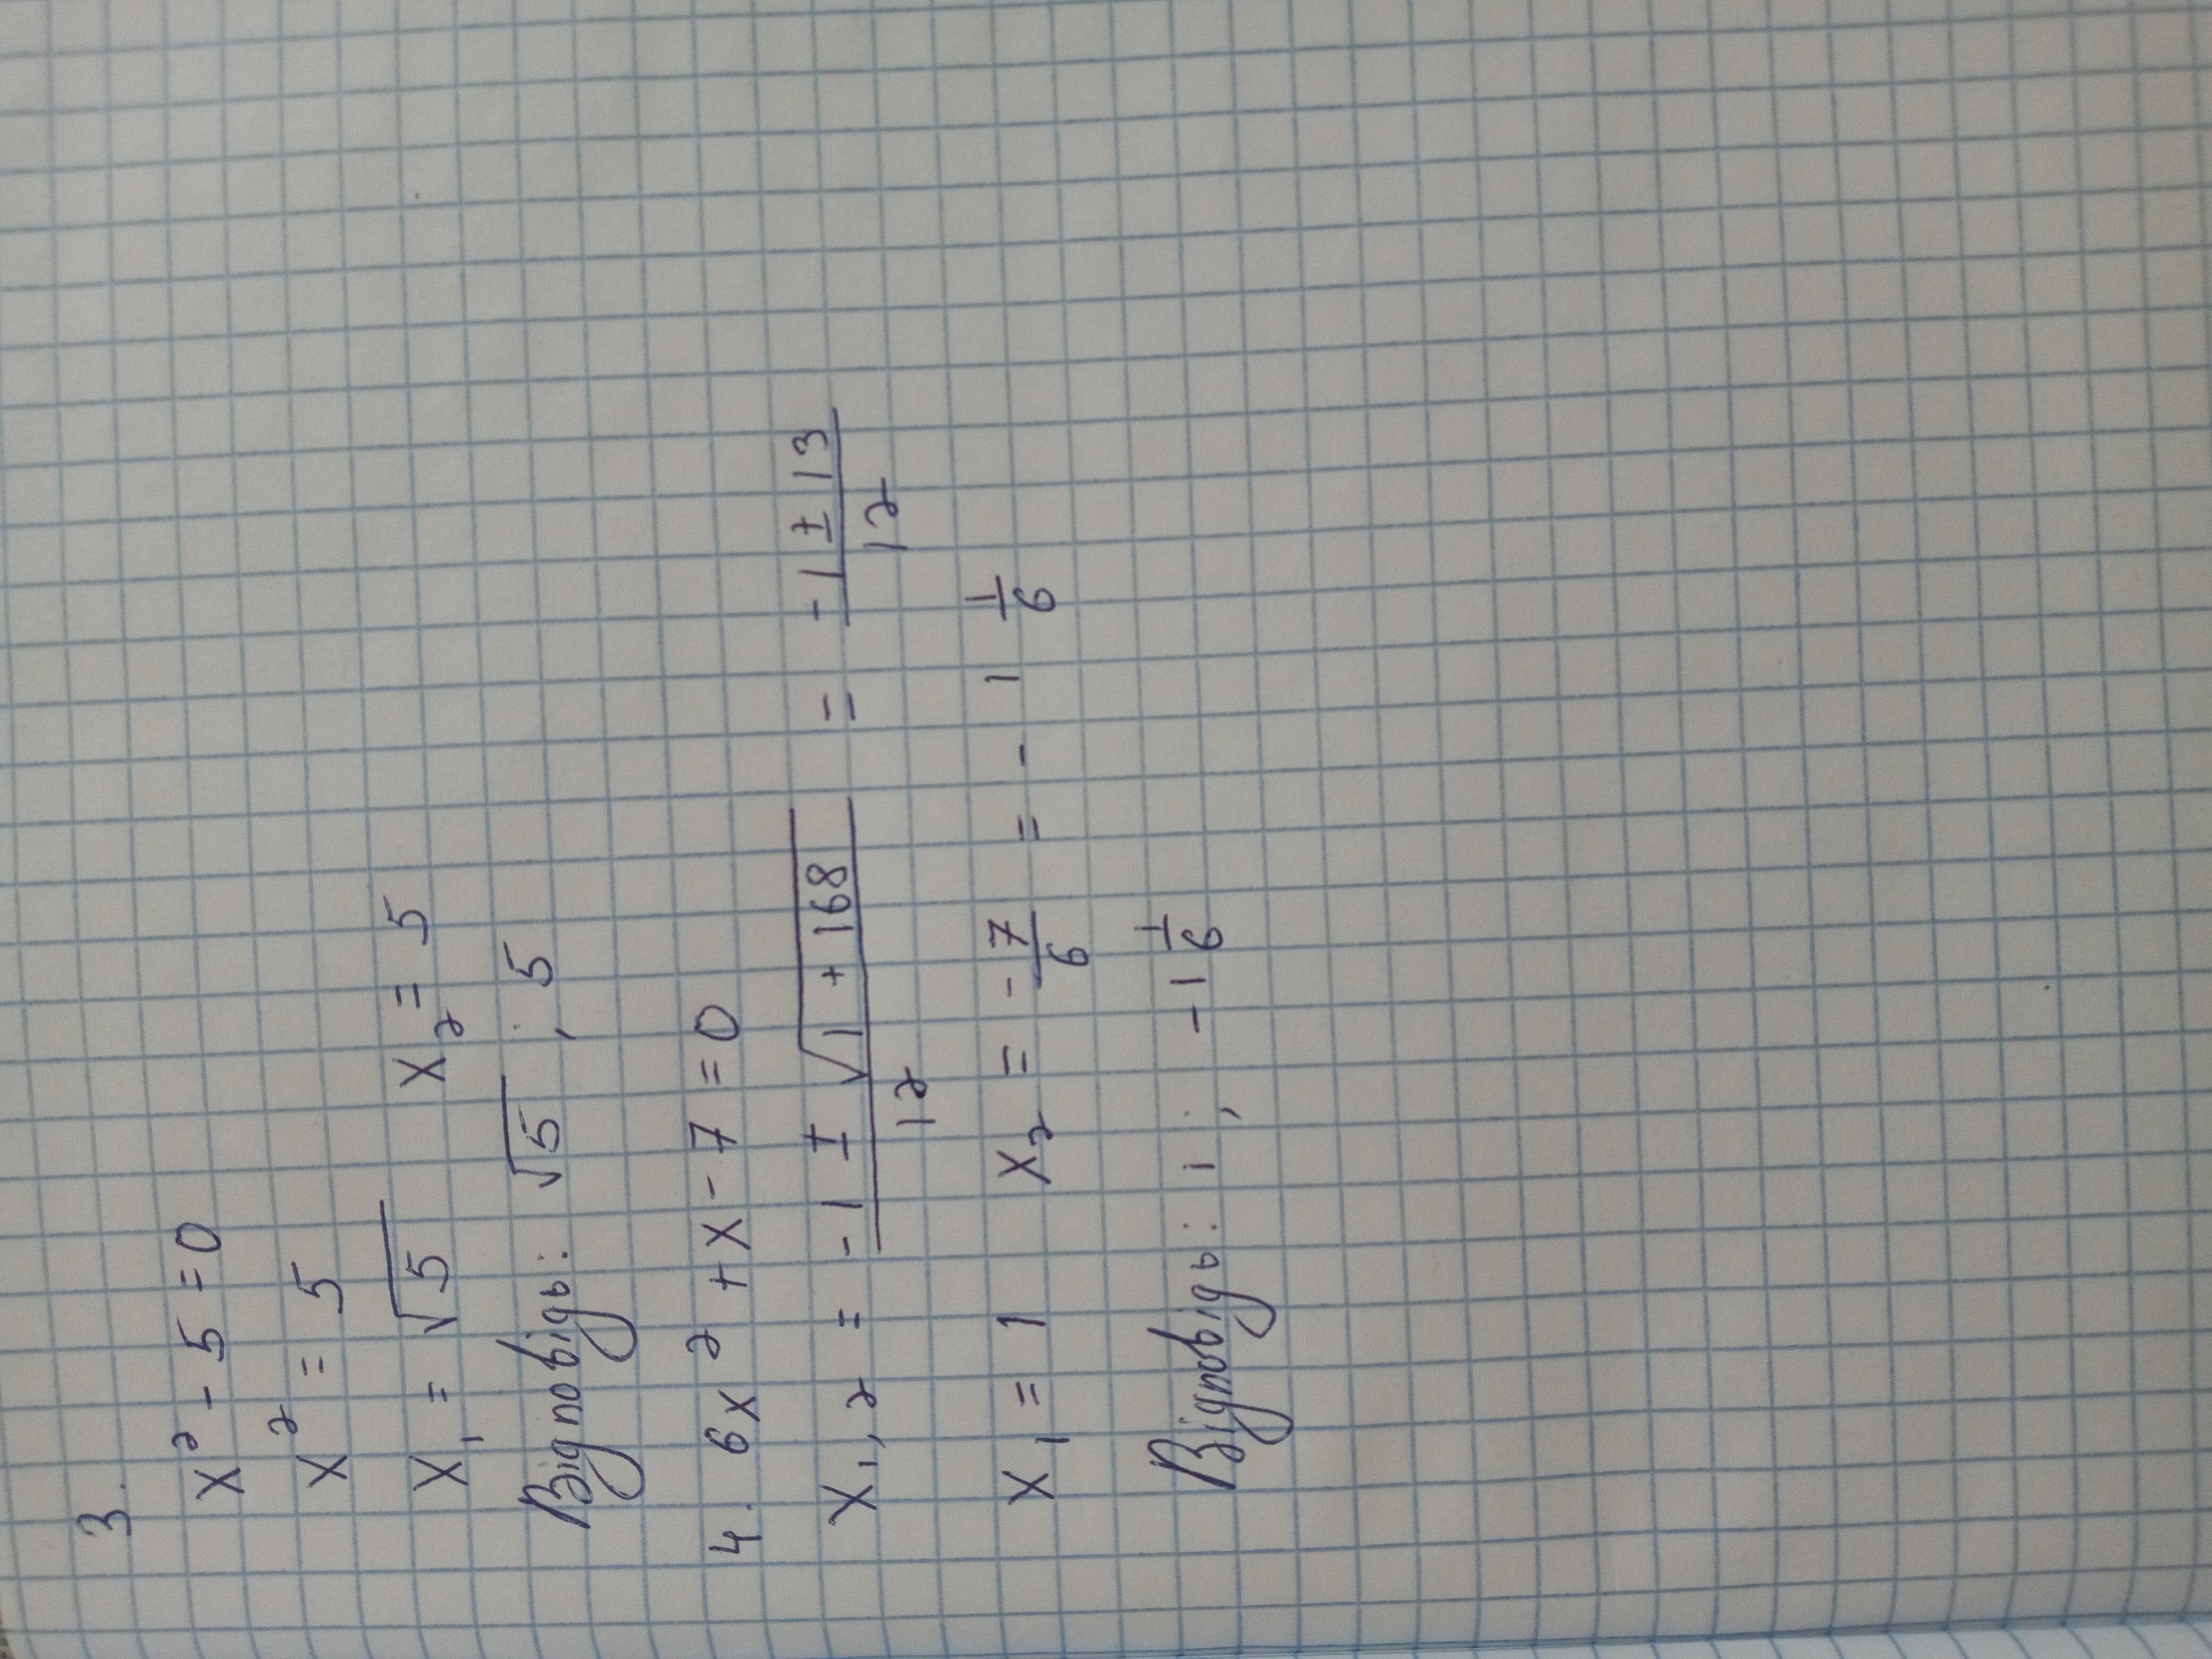 3.
x² - 5 = 0
x² = 5
x₁ = √5 x₂ = 5
Відповідь: √5 ; 5
4. 6x² + x - 7 = 0
x₁,₂ = (-1 ± √(1 + 168))/12 = (-1 ± 13)/12
x₁ = 1 x₂ = -7/6 = - 1 1/6
Відповідь: 1 ; -1 1/6